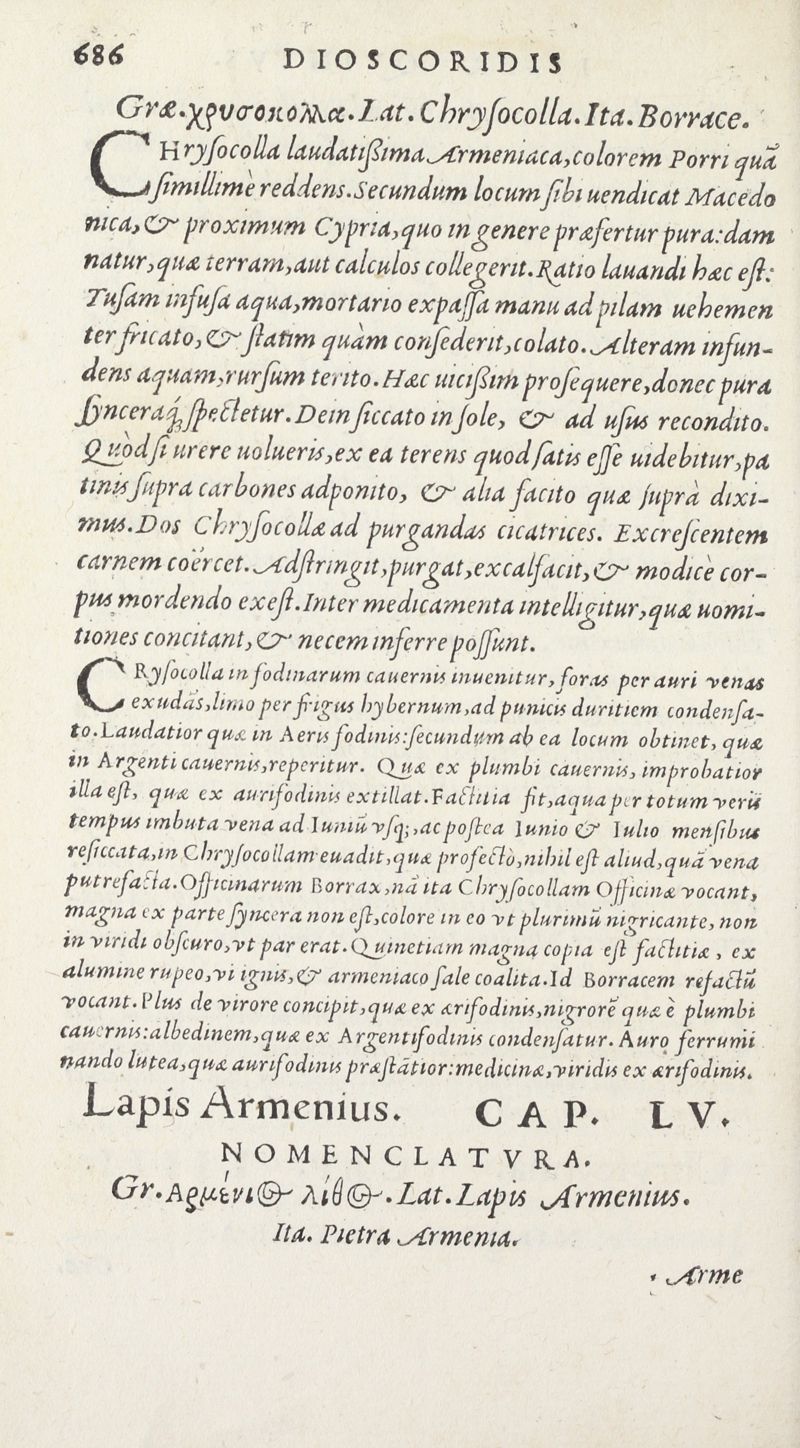 686 DIOSCORIDIS
Græ.χρυσοκολλα.Lat.Chryſocolla.Ita.Borrace.
CHryſocolla laudatißima Armeniaca,colorem Porri quã
ſimillimè reddens.Secundum locum ſibi uendicat Macedo
nica,& proximum Cypria,quo in genere præfertur pura:dam
natur,quæ terram,aut calculos collegerit.Ratio lauandi hæc eſt:
Tuſam infuſa aqua,mortario expaſſa manu ad pilam uehemen
ter fricato,& ſtatim quàm conſederit,colato.Alteram infun-
dens aquam,rurſum terito.Hæc uicißim proſequere,donec pura
ſynceraq́ꝫ ſpectetur.Dein ſiccato in ſole, & ad uſus recondito.
Quòdſi urere uolueris,ex ea terens quod ſatis eſſe uidebitur,pa
tinis ſupra carbones adponito, & alia facito quæ ſuprà dixi-
mus.Dos Chryſocollæ ad purgandas cicatrices. Excreſcentem
carnem coërcet.Adſtringit,purgat,excalfacit,& modicè cor-
pus mordendo exeſt.Inter medicamenta intelligitur,quæ uomi-
tiones concitant,& necem inferre poſſunt.
CRyſocolla in fodinarum cauernis inuenitur,foras per auri venas
exudãs,limo per frigus hybernum,ad punicis duritiem condenſa-
to.Laudatior quæ in Aeris fodinis:ſecundum ab ea locum obtinet, quæ
in Argenti cauernis,reperitur. Quæ ex plumbi cauernis, improbatior
illa eſt, quæ ex aurifodinis extillat.Factitia fit,aqua per totum verũ
tempus imbuta vena ad Iuniũ vſqꝫ,ac poſtea Iunio & Iulio menſibus
reſiccata,in Chryſocollam euadit,quæ profectò,nihil eſt aliud,quã vena
putrefacta.Officinarum Borrax,nã ita Chryſocollam Officinæ vocant,
magna ex parte ſyncera non eſt,colore in eo vt plurimũ nigricante, non
in viridi obſcuro,vt par erat.Quinetiam magna copia eſt factitiæ , ex
alumine rupeo,vi ignis,& armeniaco ſale coalita.Id Borracem refactũ
vocant.Plus de virore concipit,quæ ex ærifodinis,nigrorẽ quæ è plumbi
cauernis:albedinem,quæ ex Argentifodinis condenſatur. Auro ferrumi
nando lutea,quæ aurifodinis præſtãtior:medicinæ,viridis ex ærifodinis.
Lapis Armenius. CAP. LV.
NOMENCLATVRA.
Gr.Αρμένιος λίθος.Lat.Lapis Armenius.
Ita. Pietra Armenia.
Arme